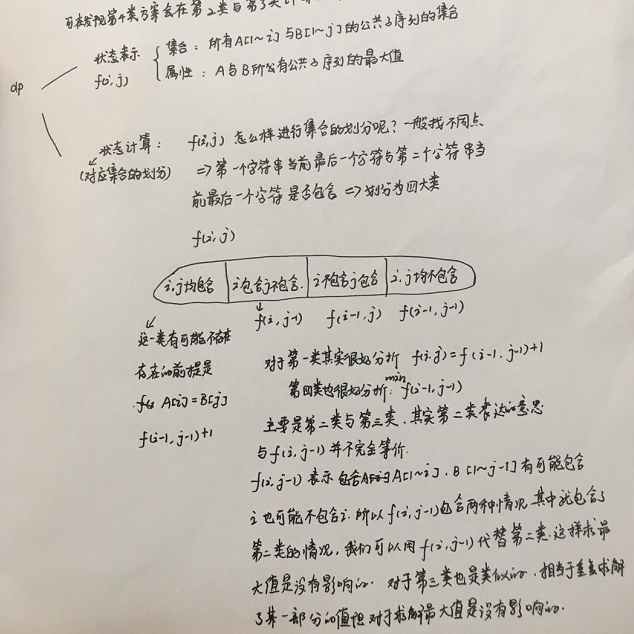 可在发现第4类方案会在第2类与第3类
dp
状态表示 { 集合：所有A[1~i]与B[1~j]的公共子序列的集合
f(i,j) 属性：A与B所有公共子序列的最大值
状态计算： f(i,j) 怎么样进行集合的划分呢？一般找不同点
(对应集合的划分) => 第一个字符串当前最后一个字符与第二个字符串当
前最后一个字符是否包含 => 划分为四大类
f(i,j)
i,j均包含 | i包含j不包含 | i不包含j包含 | i,j均不包含
f(i,j-1) f(i-1,j) f(i-1,j-1)
这一类有可能不存在
存在的前提是
A[i]=B[j]
f(i-1,j-1)+1
对于第一类其实很好分析 f(i,j)=f(i-1,j-1)+1
第四类也很好分析： f(i-1,j-1)
主要是第二类与第三类，其实第二类表达的意思
与f(i,j-1)并不完全等价.
f(i,j-1) 表示 包含 A[1~i]，B[1~j-1] 有可能包含
i 也可能不包含i. 所以 f(i,j-1)包含两种情况 其中就包含了
第二类的情况，我们可以用 f(i,j-1) 代替第二类.这样求最
大值是没有影响的. 对于第三类也是类似的，相当于重复求解
了某一部分的值但对于求解最大值是没有影响的.